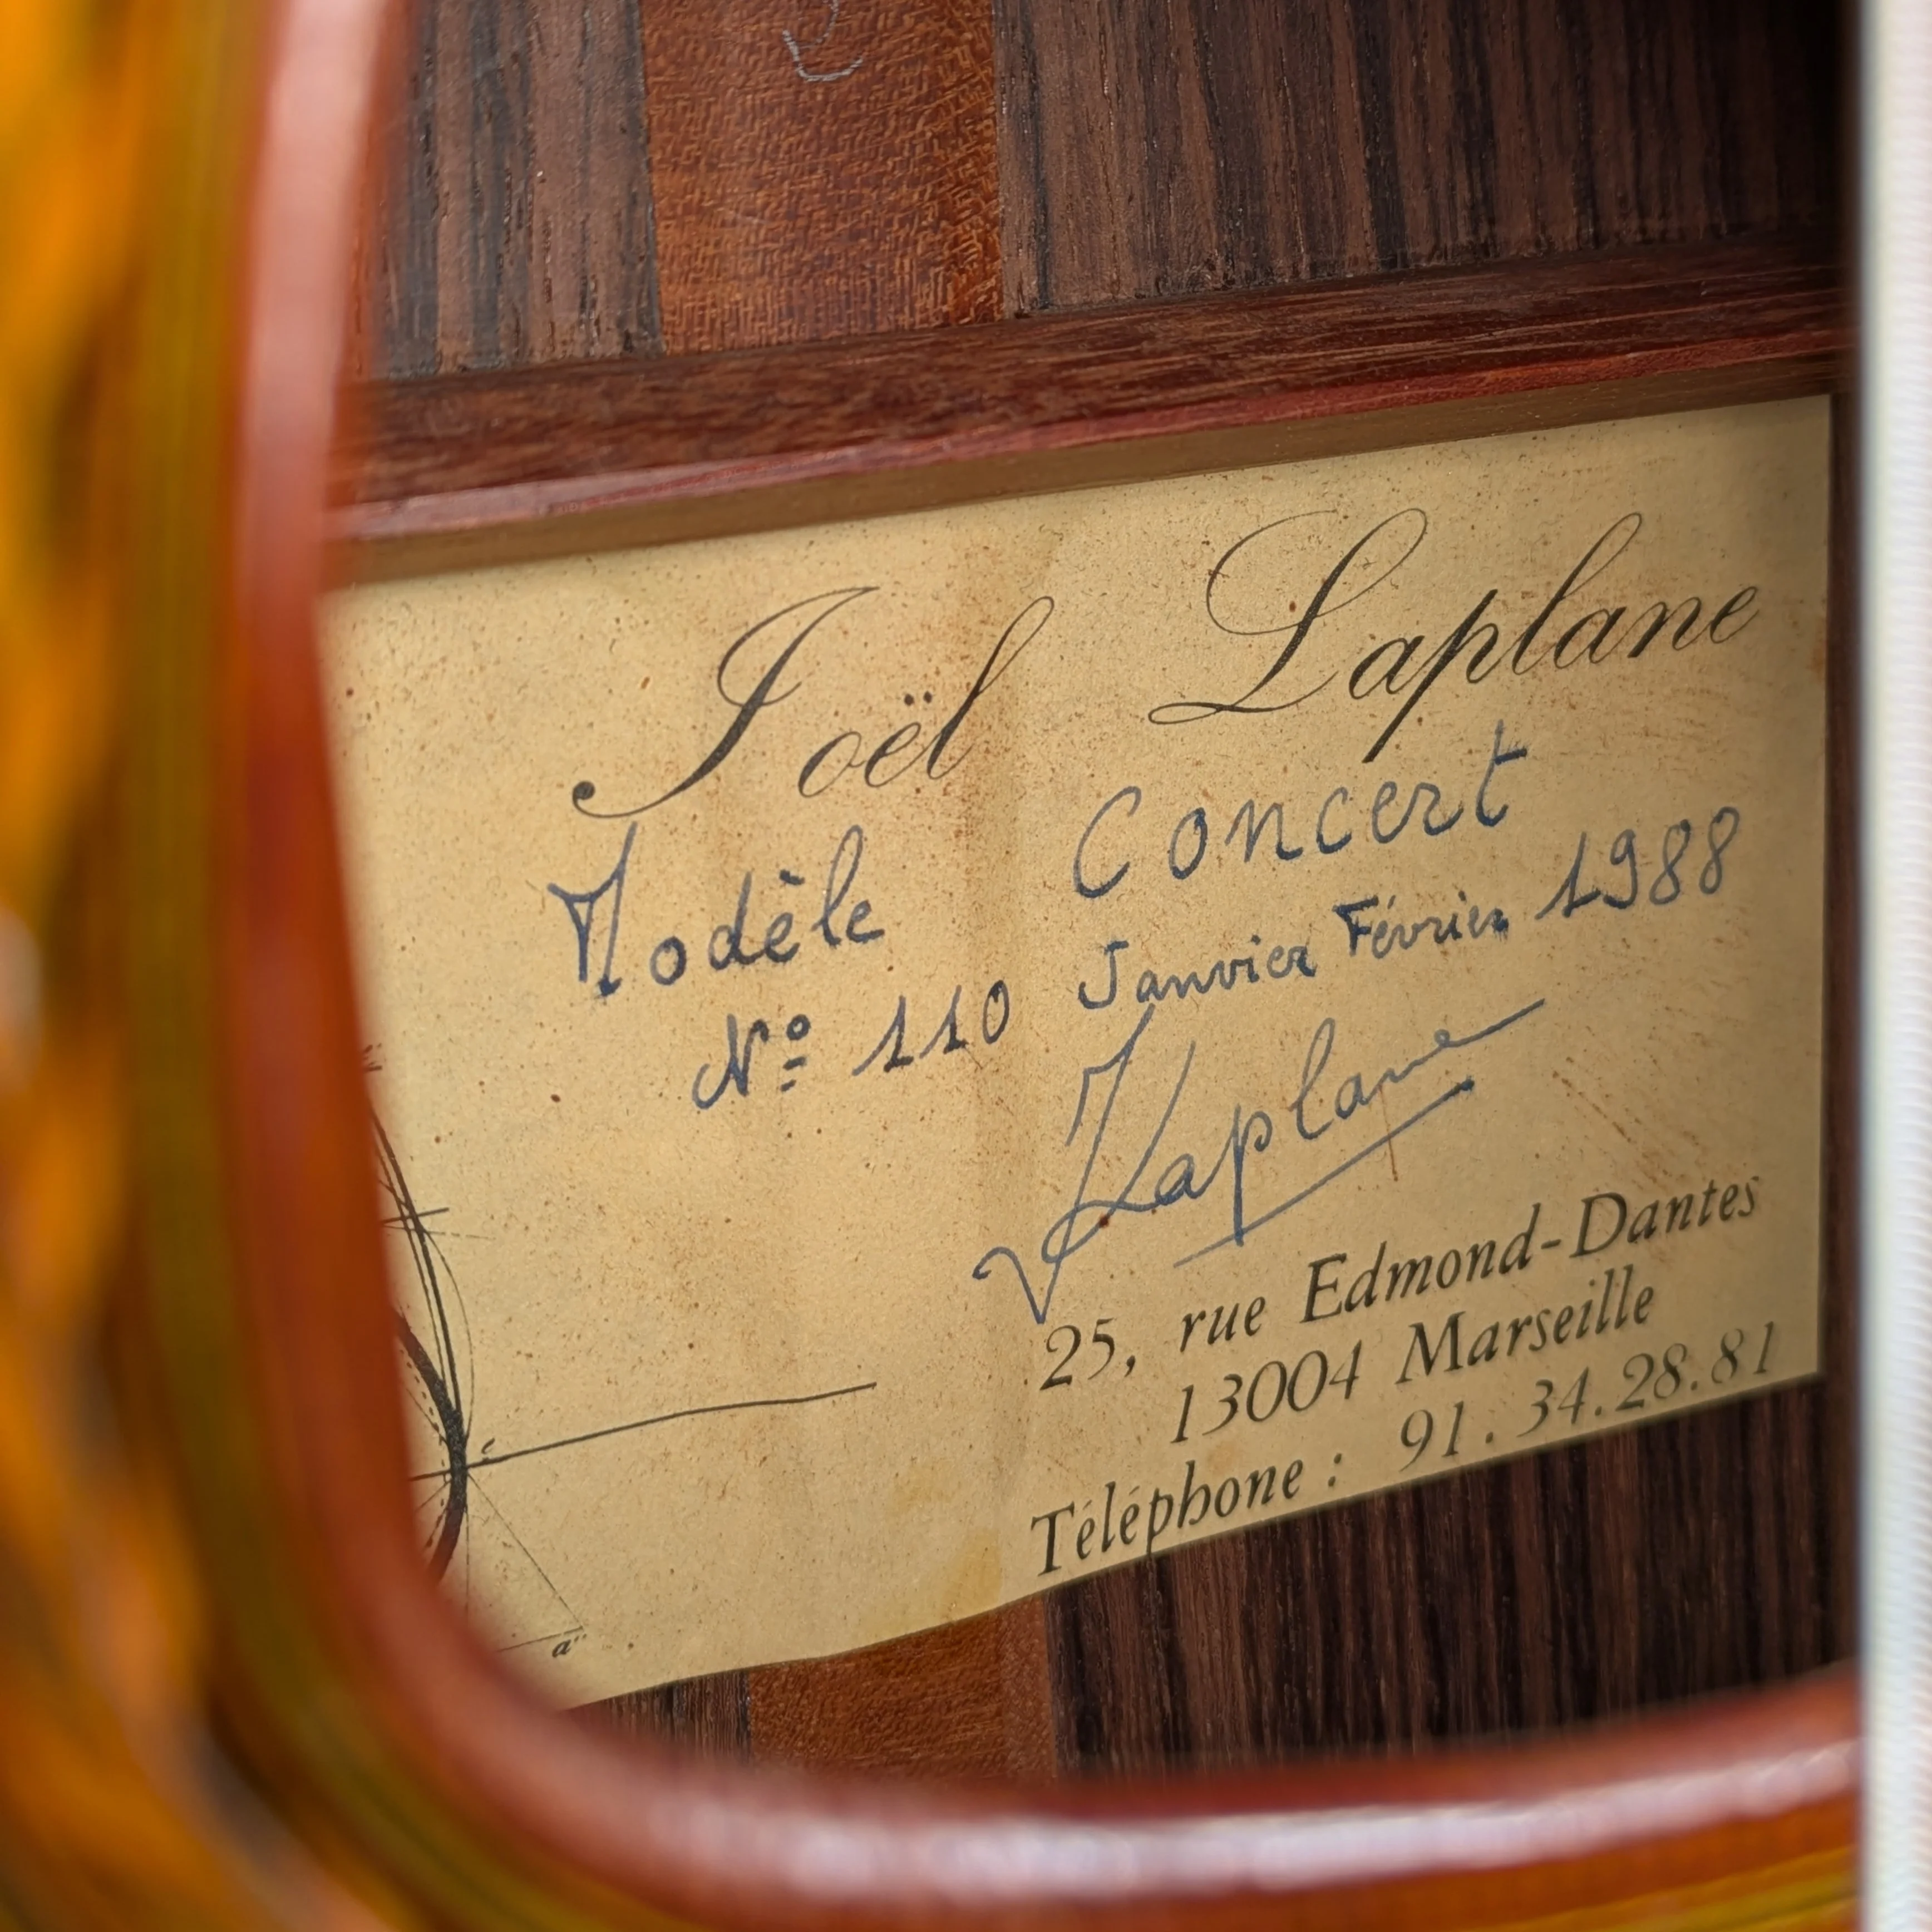 Joël Laplane
Modèle Concert
Nº 110 Janvier Février 1988
Laplane
25, rue Edmond-Dantes
13004 Marseille
Téléphone : 91.34.28.81
c
a''